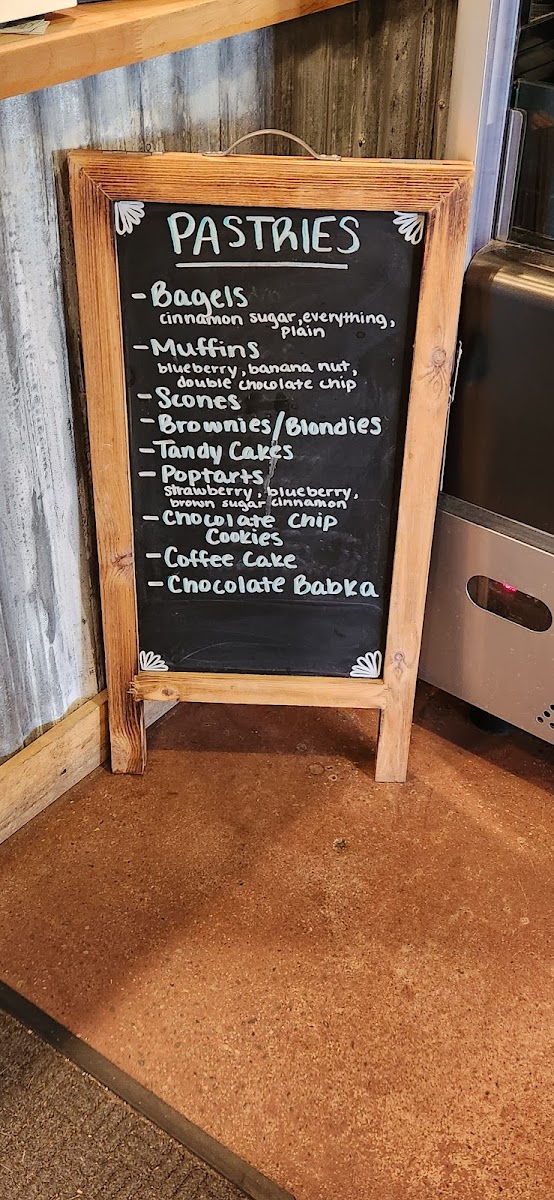 PASTRIES
-Bagels
cinnamon sugar, everything,
plain
-Muffins
blueberry, banana nut,
double chocolate chip
-Scones
-Brownies/Blondies
-Tandy Cakes
-Poptarts
Strawberry, blueberry,
brown sugar cinnamon
-Chocolate Chip
Cookies
-Coffee Cake
-Chocolate Babka